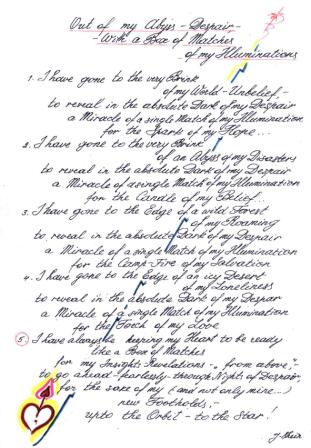 Out of my Abyss - Despair -
- With a Box of Matches
of my Illuminations
1. I have gone to the very Brink
of my World - Unbelief, -
to reveal in the absolute Dark of my Despair
a Miracle of a single Match of my Illumination
for the Spark of my Hope...
2. I have gone to the very Brink
of an Abyss of my Disasters
to reveal in the absolute Dark of my Despair
a Miracle of a single Match of my Illumination
for the Candle of my Belief..
3. I have gone to the Edge of a wild Forest
of my Roaming
to reveal in the absolute Dark of my Despair
a Miracle of a single Match of my Illumination
for the Camp-Fire of my Salvation
4. I have gone to the Edge of an icy Desert
of my Loneliness
to reveal in the absolute Dark of my Despar
a Miracle of a single Match of my Illumination
for the Torch of my Love
5. I have always be keeping my Heart to be ready
like a Box of Matches
for my Insights-Revelations - "from above", -
to go ahead fearlessly through Nights of Despair,
for the sake of my (and not only mine...)
new Footholds, -
upto the Orbit - to the Star!